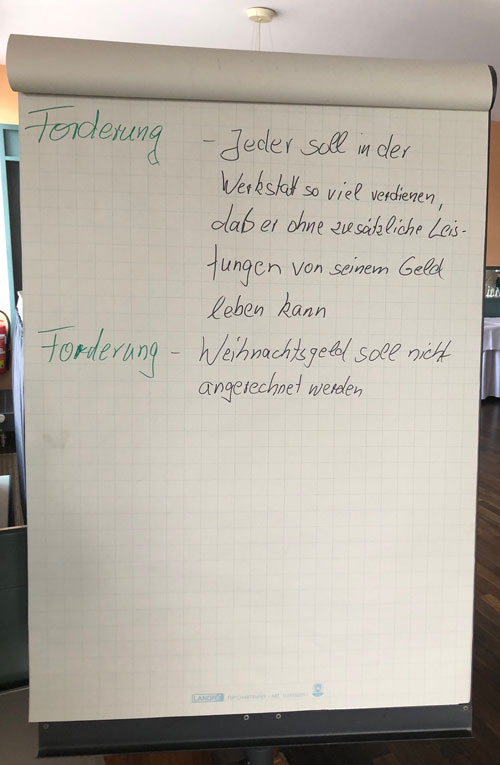 Forderung - Jeder soll in der
Werkstatt so viel verdienen,
daß er ohne zusätzliche Leis-
tungen von seinem Geld
leben kann
Forderung - Weihnachtsgeld soll nicht
angerechnet werden
LANDRÉ